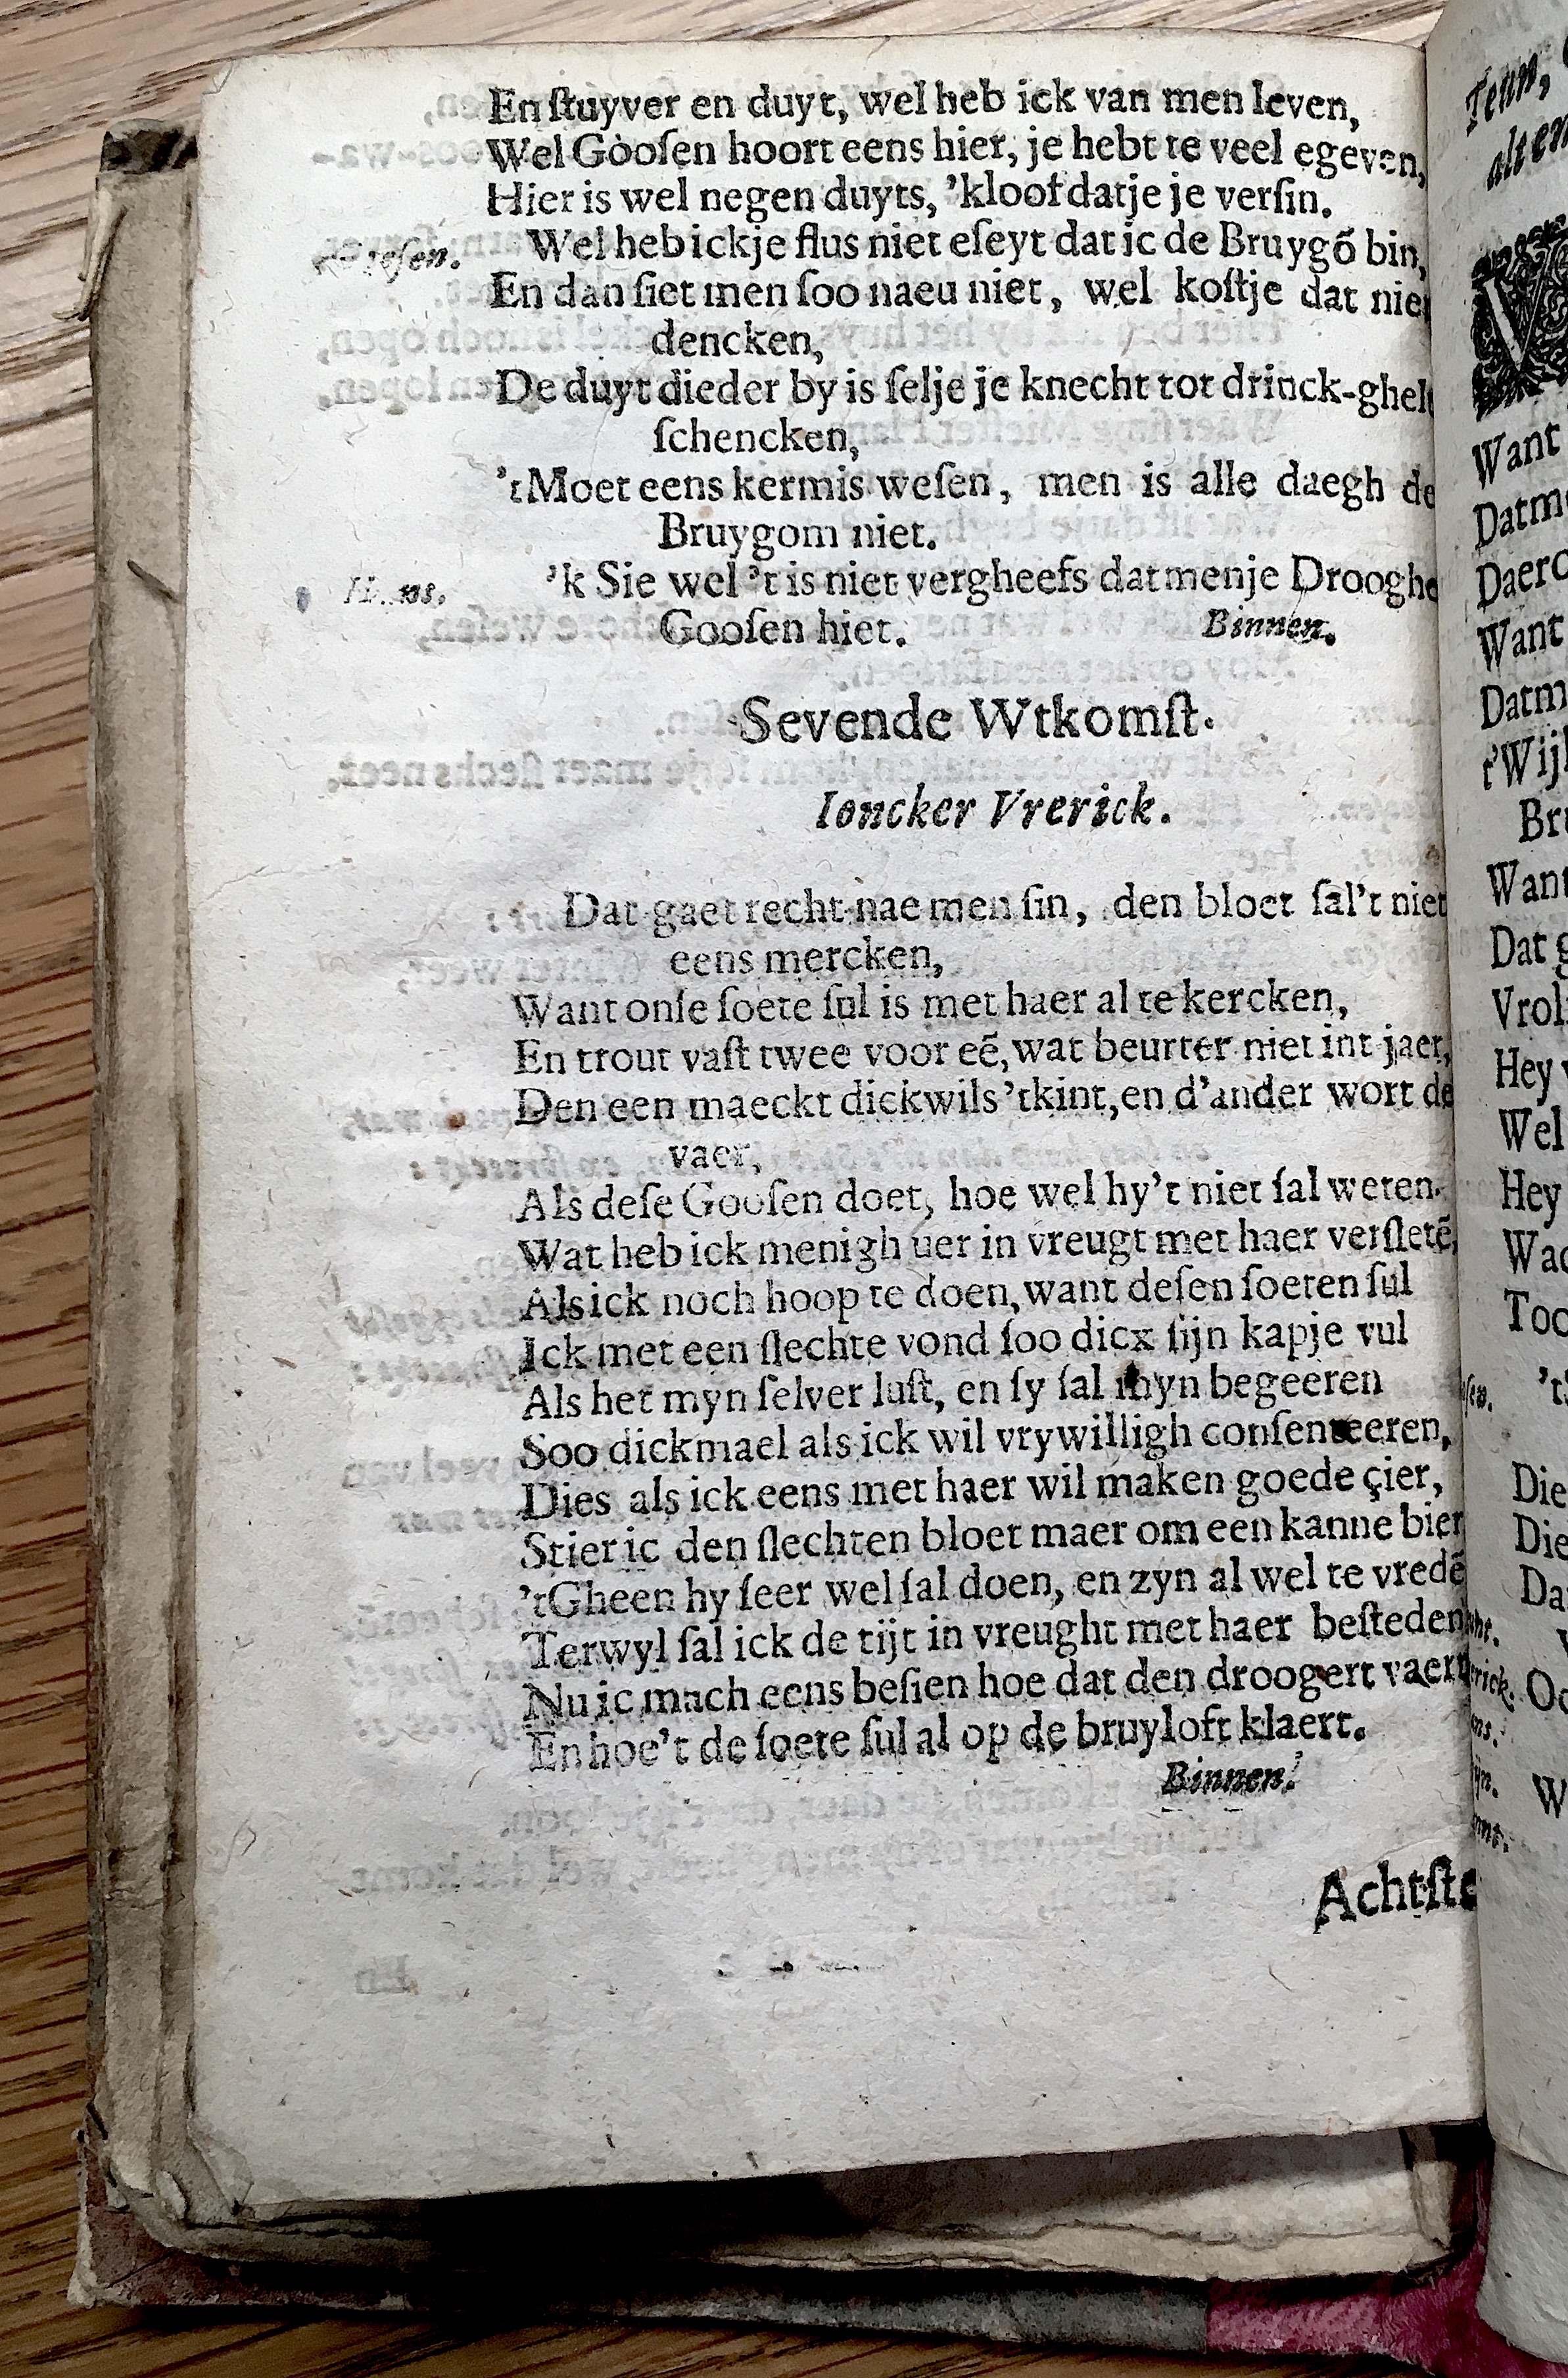 En ſtuyver en duyt, wel heb ick van men leven,
Wel Gooſen hoort eens hier, je hebt te veel egeven,
Hier is wel negen duyts, 'kloof datje je verſin.
Wel heb ickje flus niet eſeyt dat ic de Bruygõ bin,
En dan ſiet men ſoo naeu niet, wel koſtje dat nie
dencken,
De duyt dieder by is ſelje je knecht tot drinck-ghel
ſchencken,
'tMoet eens kermis weſen, men is alle daegh de
Bruygom niet.
'k Sie wel 't is niet vergheefs datmenje Drooghe
Gooſen hiet. Binnen.
Sevende Wtkomſt.
Ioncker Vrerick.
Dat gaet recht nae men ſin, den bloet ſal't niet
eens mercken,
Want onſe ſoete ſul is met haer al te kercken,
En trout vaſt twee voor eẽ, wat beurter niet int jaer,
Den een maeckt dickwils 'tkint, en d'ander wort de
vaer,
Als deſe Gooſen doet, hoe wel hy't niet ſal weten.
Wat heb ick menigh uer in vreugt met haer verſletẽ,
Als ick noch hoop te doen, want deſen ſoeten ſul
Ick met een ſlechte vond ſoo dicx ſijn kapje vul
Als het myn ſelver luſt, en ſy ſal myn begeeren
Soo dickmael als ick wil vrywilligh conſenteeren,
Dies als ick eens met haer wil maken goede çier,
Stier ic den ſlechten bloet maer om een kanne bier
'tGheen hy ſeer wel ſal doen, en zyn al wel te vredẽ
Terwyl ſal ick de tijt in vreught met haer beſteden
Nu ic mach eens beſien hoe dat den droogert vaert
En hoe't de ſoete ſul al op de bruyloft klaert.
Binnen.
Achtſte
Want
Want
Brü
Want
Dat
Vrol
Hey
Wel
Hey
Die
Die